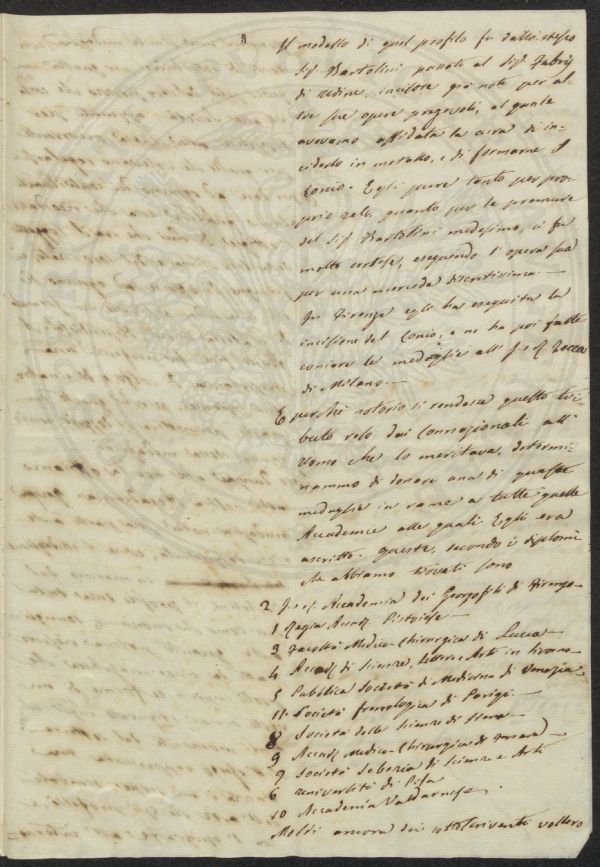 8
Il modello di quel profilo fu dallo stesso
Sig.r Bartolini passato al Sig.r Fabris
di Udine, incisore già noto per al-
tre sue opere pregevoli, al quale
avevamo affidata la cura di in-
ciderlo in metallo, e di formarne il
Conio. Egli pure tanto per pro-
prio zelo, quanto per le premure
del Sig.r Bartolini medesimo, ci fu
molto cortese, eseguendo l'opera sua
per una mercede discretissima.—
In Firenze egli ha eseguita la
incisione del Conio, e ne ha poi fatte
coniare le medaglie all' I. e R. Zecca
di Milano.—
E perchè notorio si rendesse questo tri-
buto reso dai Connazionali all'
Uomo che lo meritava, determi-
nammo di donare una di queste
medaglie in rame a tutte quelle
Accademie alle quali Egli era
ascritto. Queste, secondo i diplomi
che abbiamo trovati sono
2 I. e R. Accademia dei Georgofili di Firenze—
1 Regia Accad. Pistoiese—
3 Facoltà Medico-Chirurgica di Lucca—
4 Accad. di Scienze, Lettere e Arti in Livorno—
5 Pubblica Società di Medicina di Venezia
11. Società frenologica di Parigi—
8 Società delle Scienze di Siena—
9 Accad. Medico-Chirurgica di
7 Società di Scienze e Arti
6 Università di Pisa
10 Accademia Valdarnese.
Molti ancora dei sottoscriventi vollero